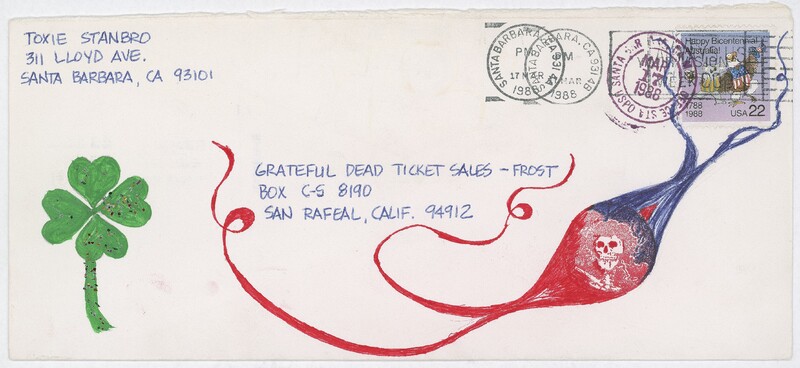 TOXIE STANBRO
311 LLOYD AVE.
SANTA BARBARA, CA 93101
SANTA BARBARA, CA 931
PM
17 MAR
1988
SANTA BARBARA, CA 93148
PM
MAR
1988
SANTA BAR
MAR
17
1988
USPO
Happy Bicentennial
Australia!
1788
1988
USA 22
GRATEFUL DEAD TICKET SALES – FROST
BOX C-S 8190
SAN RAFEAL, CALIF. 94912